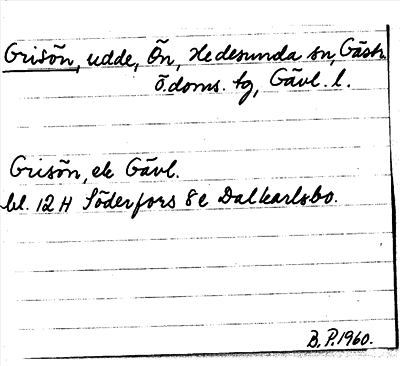 Grisön, udde, Ön, Hedesunda sn, Gästr.
Ö.doms. tg, Gävl. l.
Grisön, ek Gävl.
bl. 12 H Söderfors 8e Dalkarlsbo.
B.P. 1960.